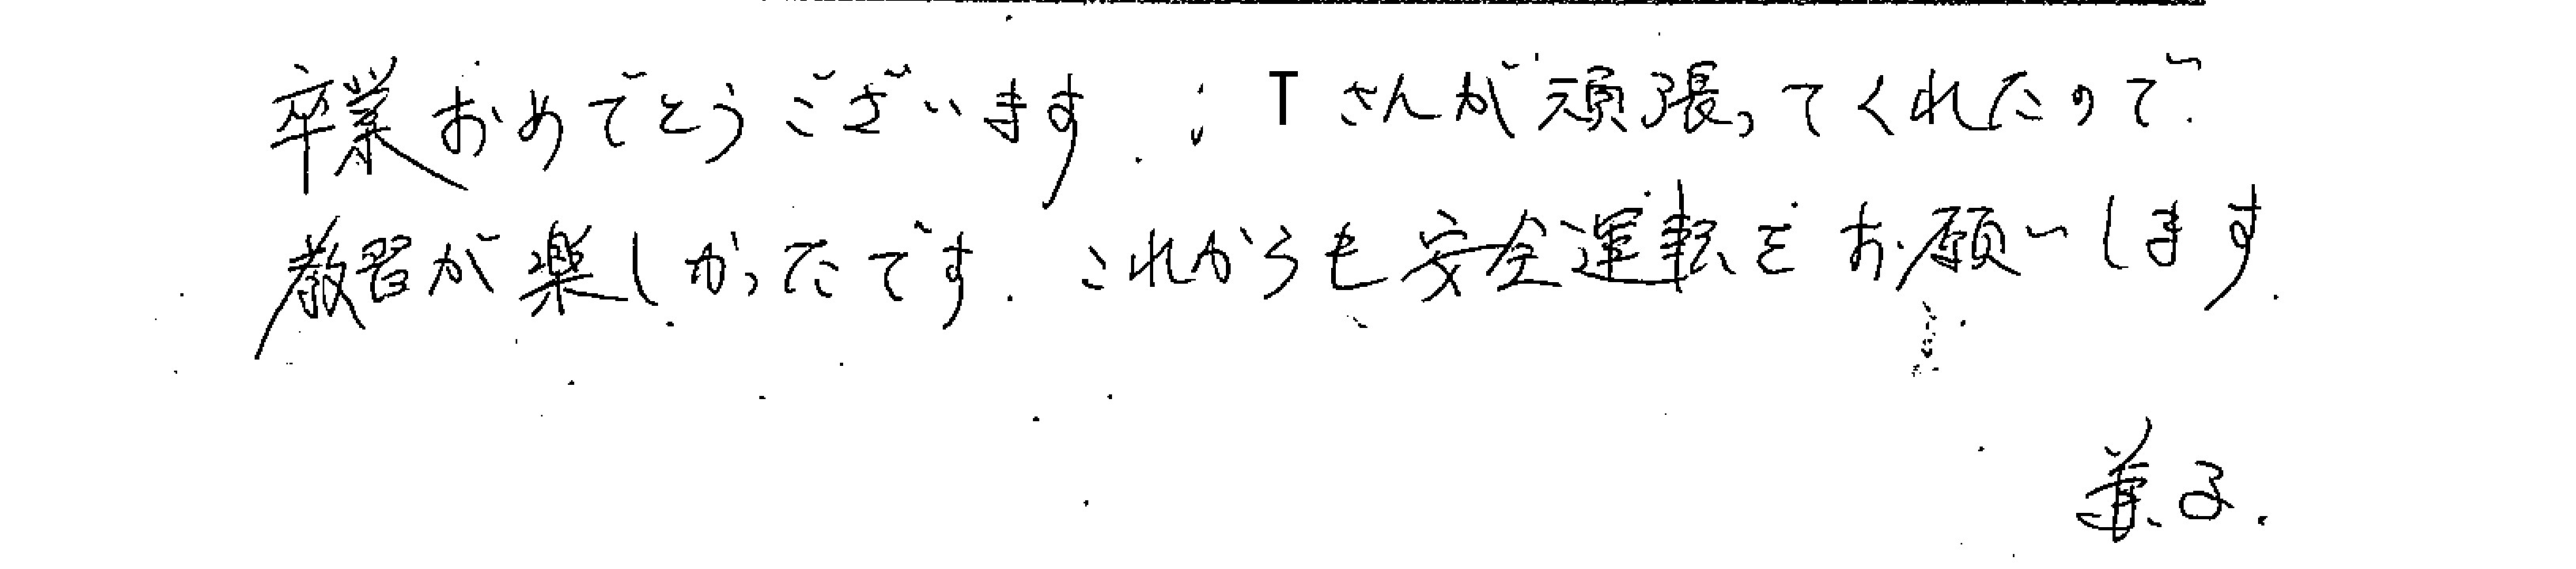 卒業おめでとうございます. Tさんが頑張ってくれたので.
教習が楽しかったです. これからも安全運転をお願いします.